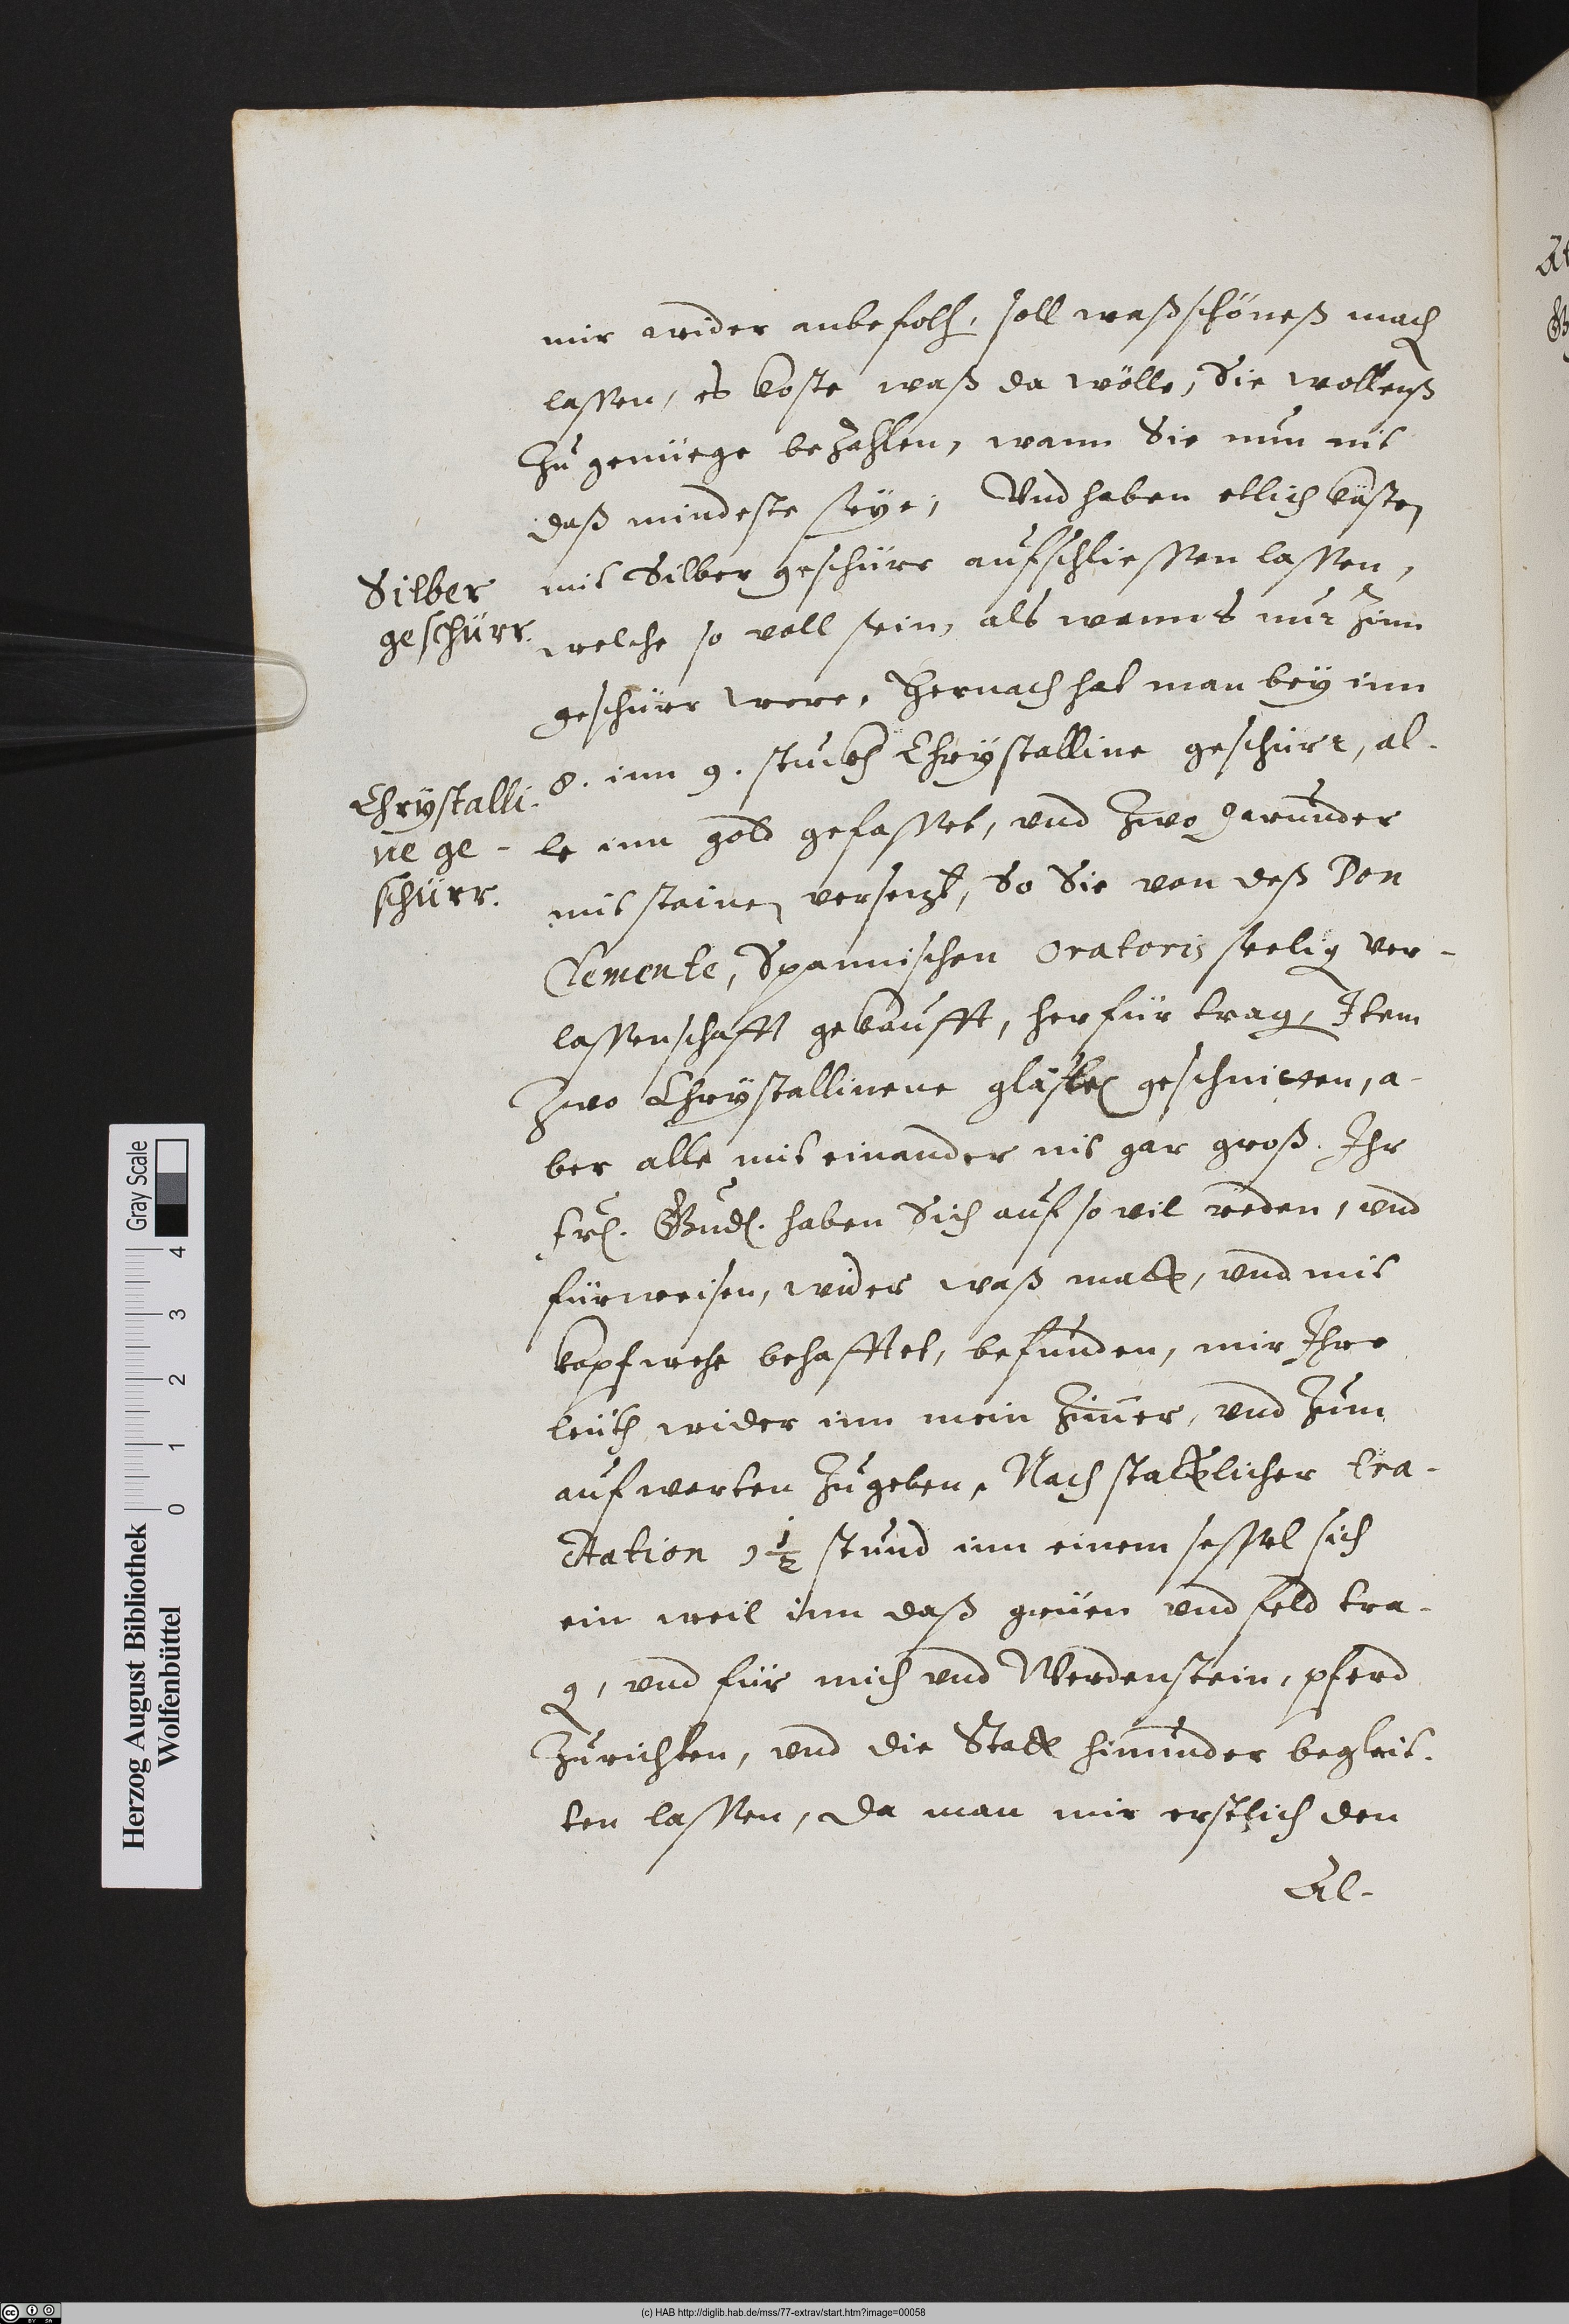 mir wider anbefolh, soll waß schöneß mach
lassen, es koste waß da wölle, Sie wollenß
zu genüege bezahlen, wann Sie nun nit
daß mindeste seye, Vnd haben etlich kästen
Silber
geschürr.
mit Silber geschürr aufschliessen lassen,
welche so voll sein, als wanns nur Zinn
geschürr were, Hernach hat man bey inn
Chrystalli-
ne ge-
schürr.
8. inn 9. stuckh Chrystalline geschürr, al-
le inn gold gefasset, vnd zwo darunder
mit stainen versezt, So Sie von deß Don
Clemente, Spannischen Oratoris seelig ver-
lassenschafft gekaufft, herfür trag, Item
Zwo Chrystallinene gläser geschnitten, a-
ber alle mit einander nit gar groß. Ihr
frl. Gnd. haben Sich auf so vil reden, vnd
fürweisen, wider waß matt, vnd mit
kopfwehe behafftet, befunden, mir Ihre
leüth wider inn mein Zimmer, vnd zum
aufwarten zugeben, Nach stattlicher tra-
ctation 1 1/2 stund inn einem sessel sich
ein weil inn daß grüen vnd feld tra-
g, vnd für mich vnd Werdenstein, pferd
zurichten, vnd die Statt hinunder begleit-
ten lassen, da man mir erstlich den
Al-
Herzog August Bibliothek
Wolfenbüttel
0 1 2 3 4
Gray Scale
(c) HAB http://diglib.hab.de/mss/77-extrav/start.htm?image=00058